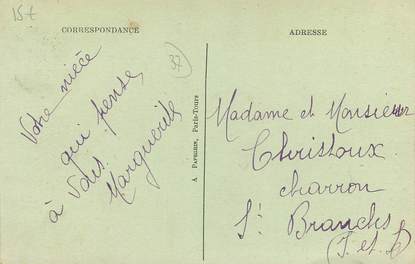 15f
CORRESPONDANCE
ADRESSE
Votre nièce
qui pense
à Vous
Marguerite
37
A PAPEGHIN, Paris-Tours
Madame et Monsieur
Christoux
charron
St Branchs
(I. et L)